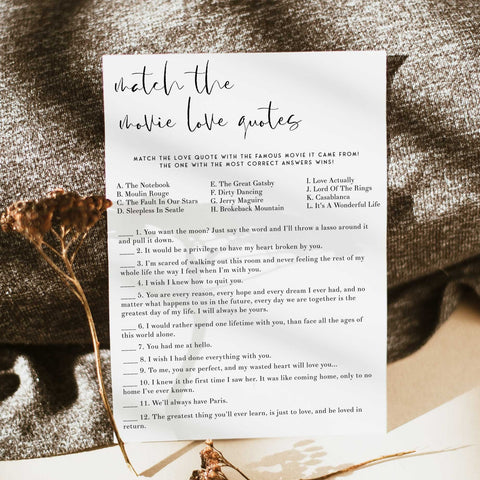 match the
movie love quotes
MATCH THE LOVE QUOTE WITH THE FAMOUS MOVIE IT CAME FROM!
THE ONE WITH THE MOST CORRECT ANSWERS WINS!
A. The Notebook
B. Moulin Rouge
C. The Fault In Our Stars
D. Sleepless In Seattle
E. The Great Gatsby
F. Dirty Dancing
G. Jerry Maguire
H. Brokeback Mountain
I. Love Actually
J. Lord Of The Rings
K. Casablanca
L. It's A Wonderful Life
___ 1. You want the moon? Just say the word and I'll throw a lasso around it
and pull it down.
___ 2. It would be a privilege to have my heart broken by you.
___ 3. I'm scared of walking out this room and never feeling the rest of my
whole life the way I feel when I'm with you.
___ 4. I wish I knew how to quit you.
___ 5. You are every reason, every hope and every dream I ever had, and no
matter what happens to us in the future, every day we are together is the
greatest day of my life. I will always be yours.
___ 6. I would rather spend one lifetime with you, than face all the ages of
this world alone.
___ 7. You had me at hello.
___ 8. I wish I had done everything with you.
___ 9. To me, you are perfect, and my wasted heart will love you...
___ 10. I knew it the first time I saw her. It was like coming home, only to no
home I've ever known.
___ 11. We'll always have Paris.
___ 12. The greatest thing you'll ever learn, is just to love, and be loved in
return.